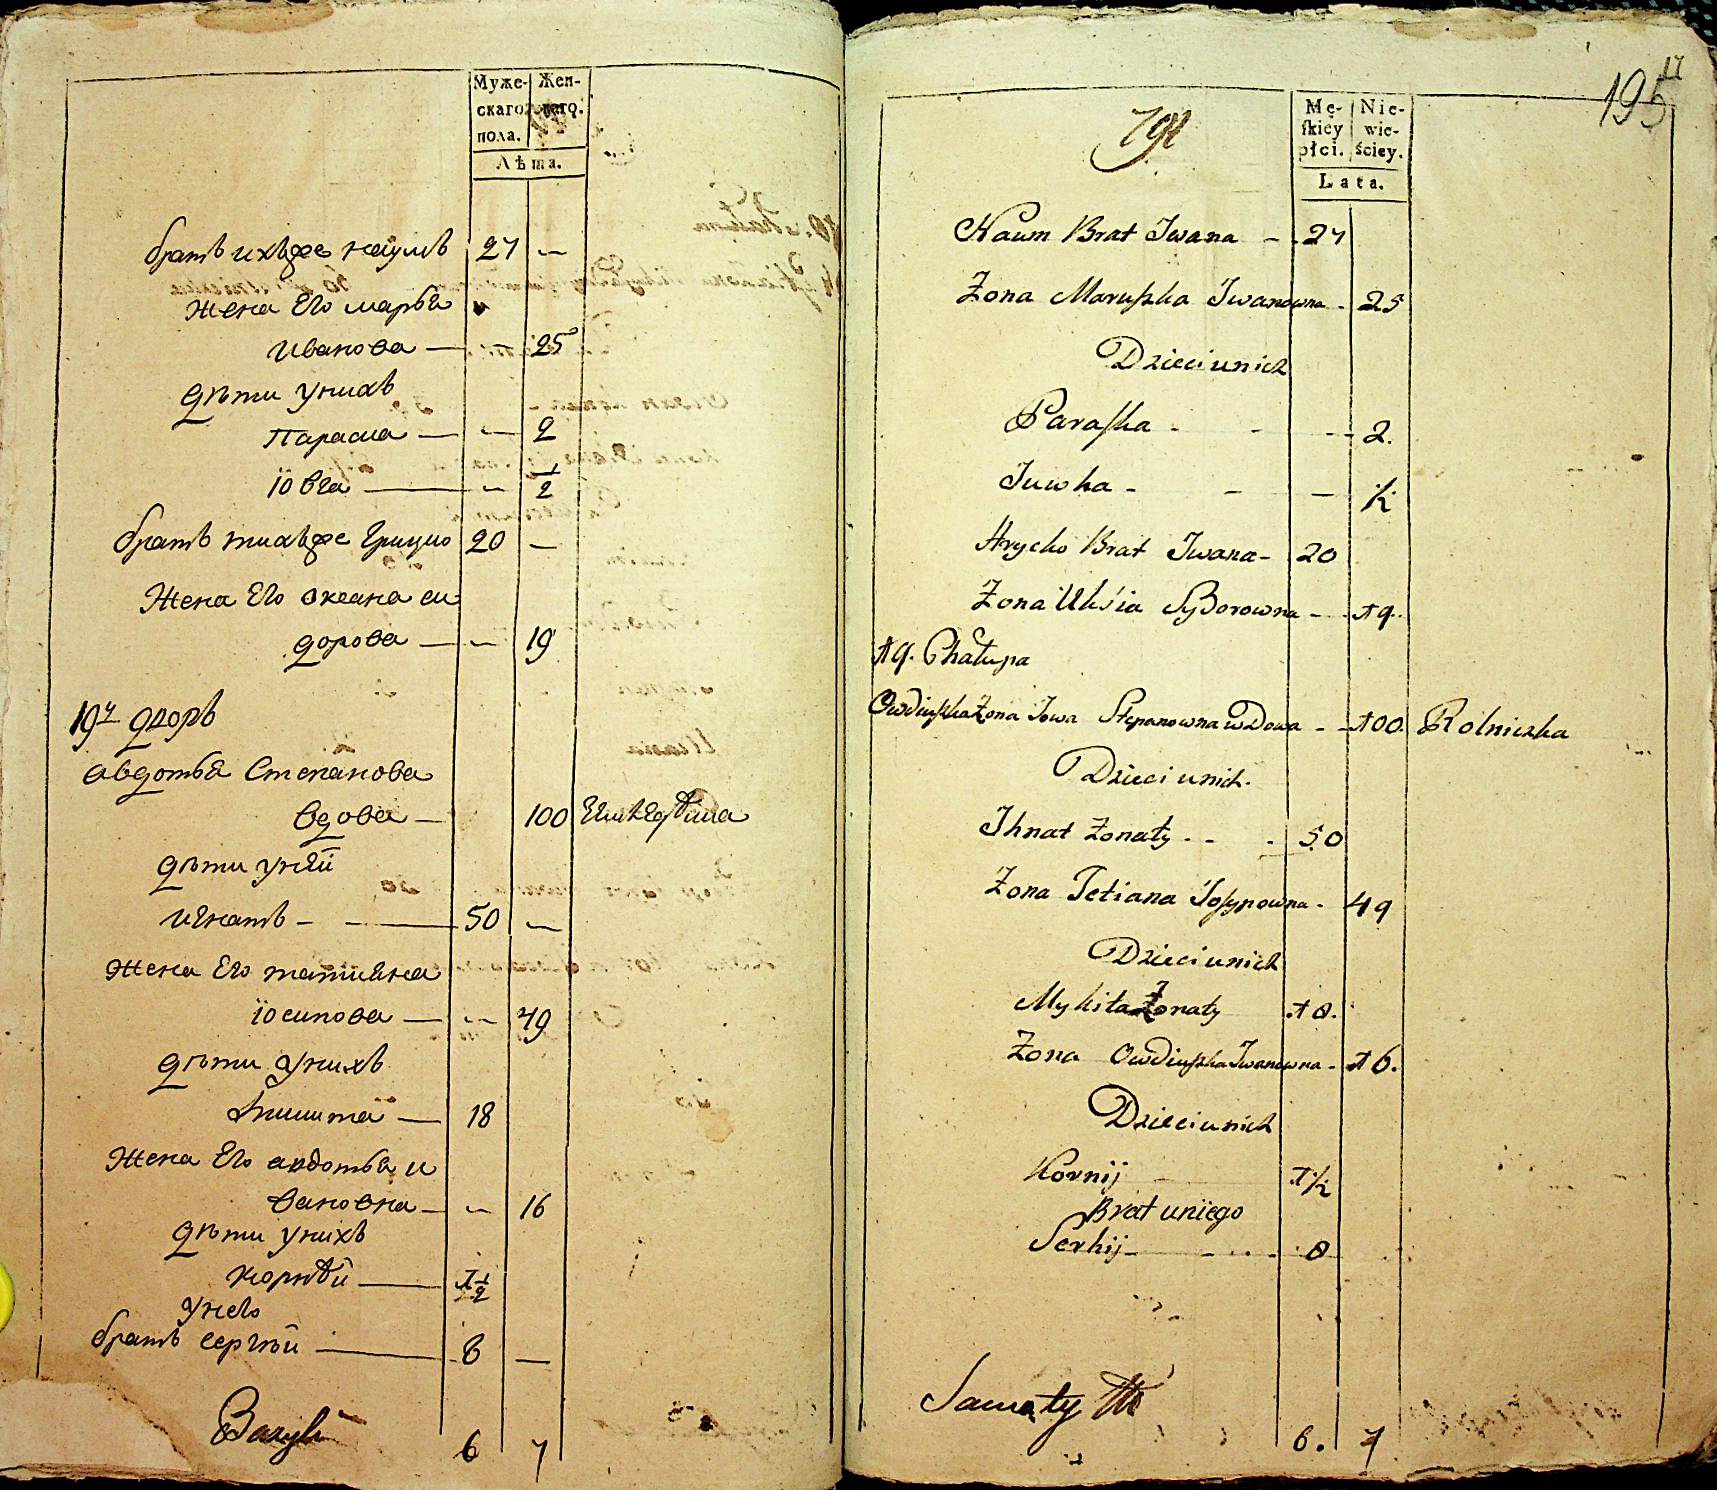 Муже-
скаго
пола.
Жен-
скаго.
Лѣта.
братъ ихъже наумъ 27 —
Жена Его марья
Иванова — — 25
дѣти унихъ
Параска — — 2
Ювга — — 1/2
братъ тихъже Грицко 20 —
Жена Его оксана си
дорова — — 19
19й дворъ
Авдотья Степанова
вдова — 100
дѣти унѣй
игнатъ — 50 —
Жена Его татияна
Юсипова — — 49
дѣти унихъ
Микита — 18
Жена Его авдотья и
вановна — — 16
дѣти унихъ
корнѣй — 1 1/2
унего
братъ сергѣй — 8 —
Bazyli
6 7
195
17
Mę-
skiey
płci.
Nie-
wie-
ściey.
Lata.
Naum Brat Iwana — 27
Żona Maruszka Iwanowna - 25
Dzieci u nich
Paraska - - - 2.
Juwka - - - ½
Hrycko Brat Iwana - 20
Żona Uksia Sydorowna - 19.
19. Chałupa
Owdiuszka Żona Iowa Stepanowna wdowa - - 100. Rolniczka
Dzieci u nich.
Ihnat Żonaty - - - 50
Żona Tetiana Josypowna - 49
Dzieci u nich
Mykita Żonaty 18.
Żona Owdiuszka Iwanowna - 16.
Dzieci u nich
Kornij 1½
Brat u niego
Serhij - - - 8
6. 7